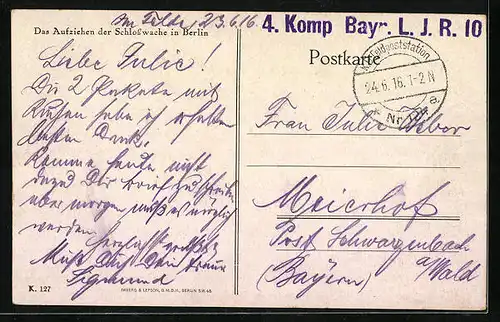 Im Felde, 23.6.16.
4. Komp Bayr. L. J. R. 10
Das Aufziehen der Schloßwache in Berlin
Postkarte
Feldpoststation
24.6.16. 1-2 N
Nr.
a.
Liebe Julie!
Du 2 Pakete mit
Kuchen habe ich erhalten
besten Dank.
Komme heute nicht
dazu Dir Brief zu schreiben
aber morgen muß es möglich
werden.
Herzlich grüßt
Dein treuer
Sigmund
Frau Julie
Meierhof
Post Schwarzenbach
a/Wald
(Bayern)
K. 127
BERLIN S.W. 68